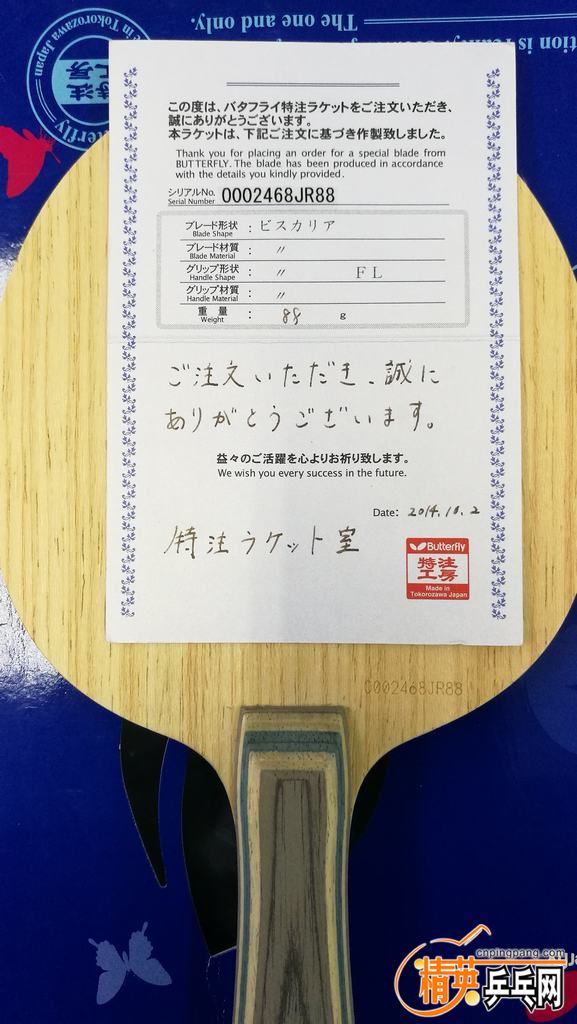 tion is
The one and only.
e in Tokorozawa Japan
特注
工房
erfly
この度は、バタフライ特注ラケットをご注文いただき、
誠にありがとうございます。
本ラケットは、下記ご注文に基づき作製致しました。
Thank you for placing an order for a special blade from
BUTTERFLY. The blade has been produced in accordance
with the details you kindly provided.
シリアルNo. 0002468JR88
Serial Number
ブレード形状 : ビスカリア
Blade Shape
ブレード材質 : 〃
Blade Material
グリップ形状 : 〃 FL
Handle Shape
グリップ材質 : 〃
Handle Material
重量 : 88 g
Weight
ご注文いただき、誠に
ありがとうございます。
益々のご活躍を心よりお祈り致します。
We wish you every success in the future.
Date: 2014.10.2
特注ラケット室
Butterfly
特注
工房
Made in
Tokorozawa Japan
0002468JR88
cnpingpang.com
精英乒乓网